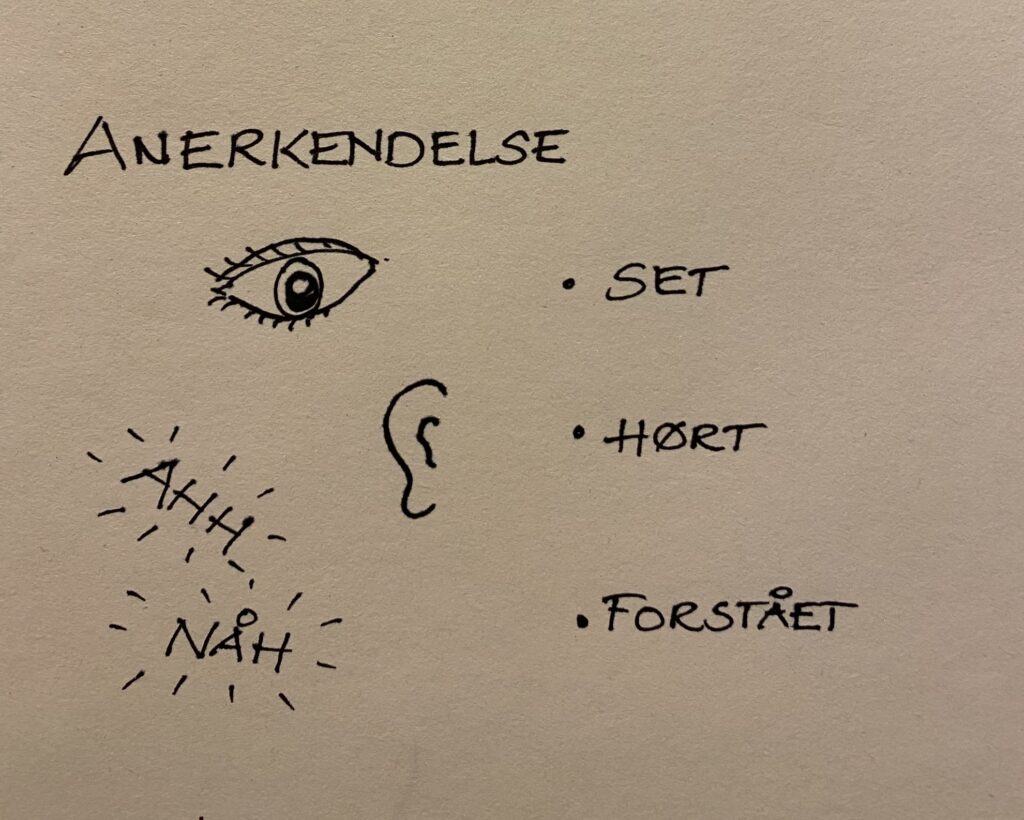 ANERKENDELSE
• SET
• HØRT
AHH
NÅH
• FORSTÅET